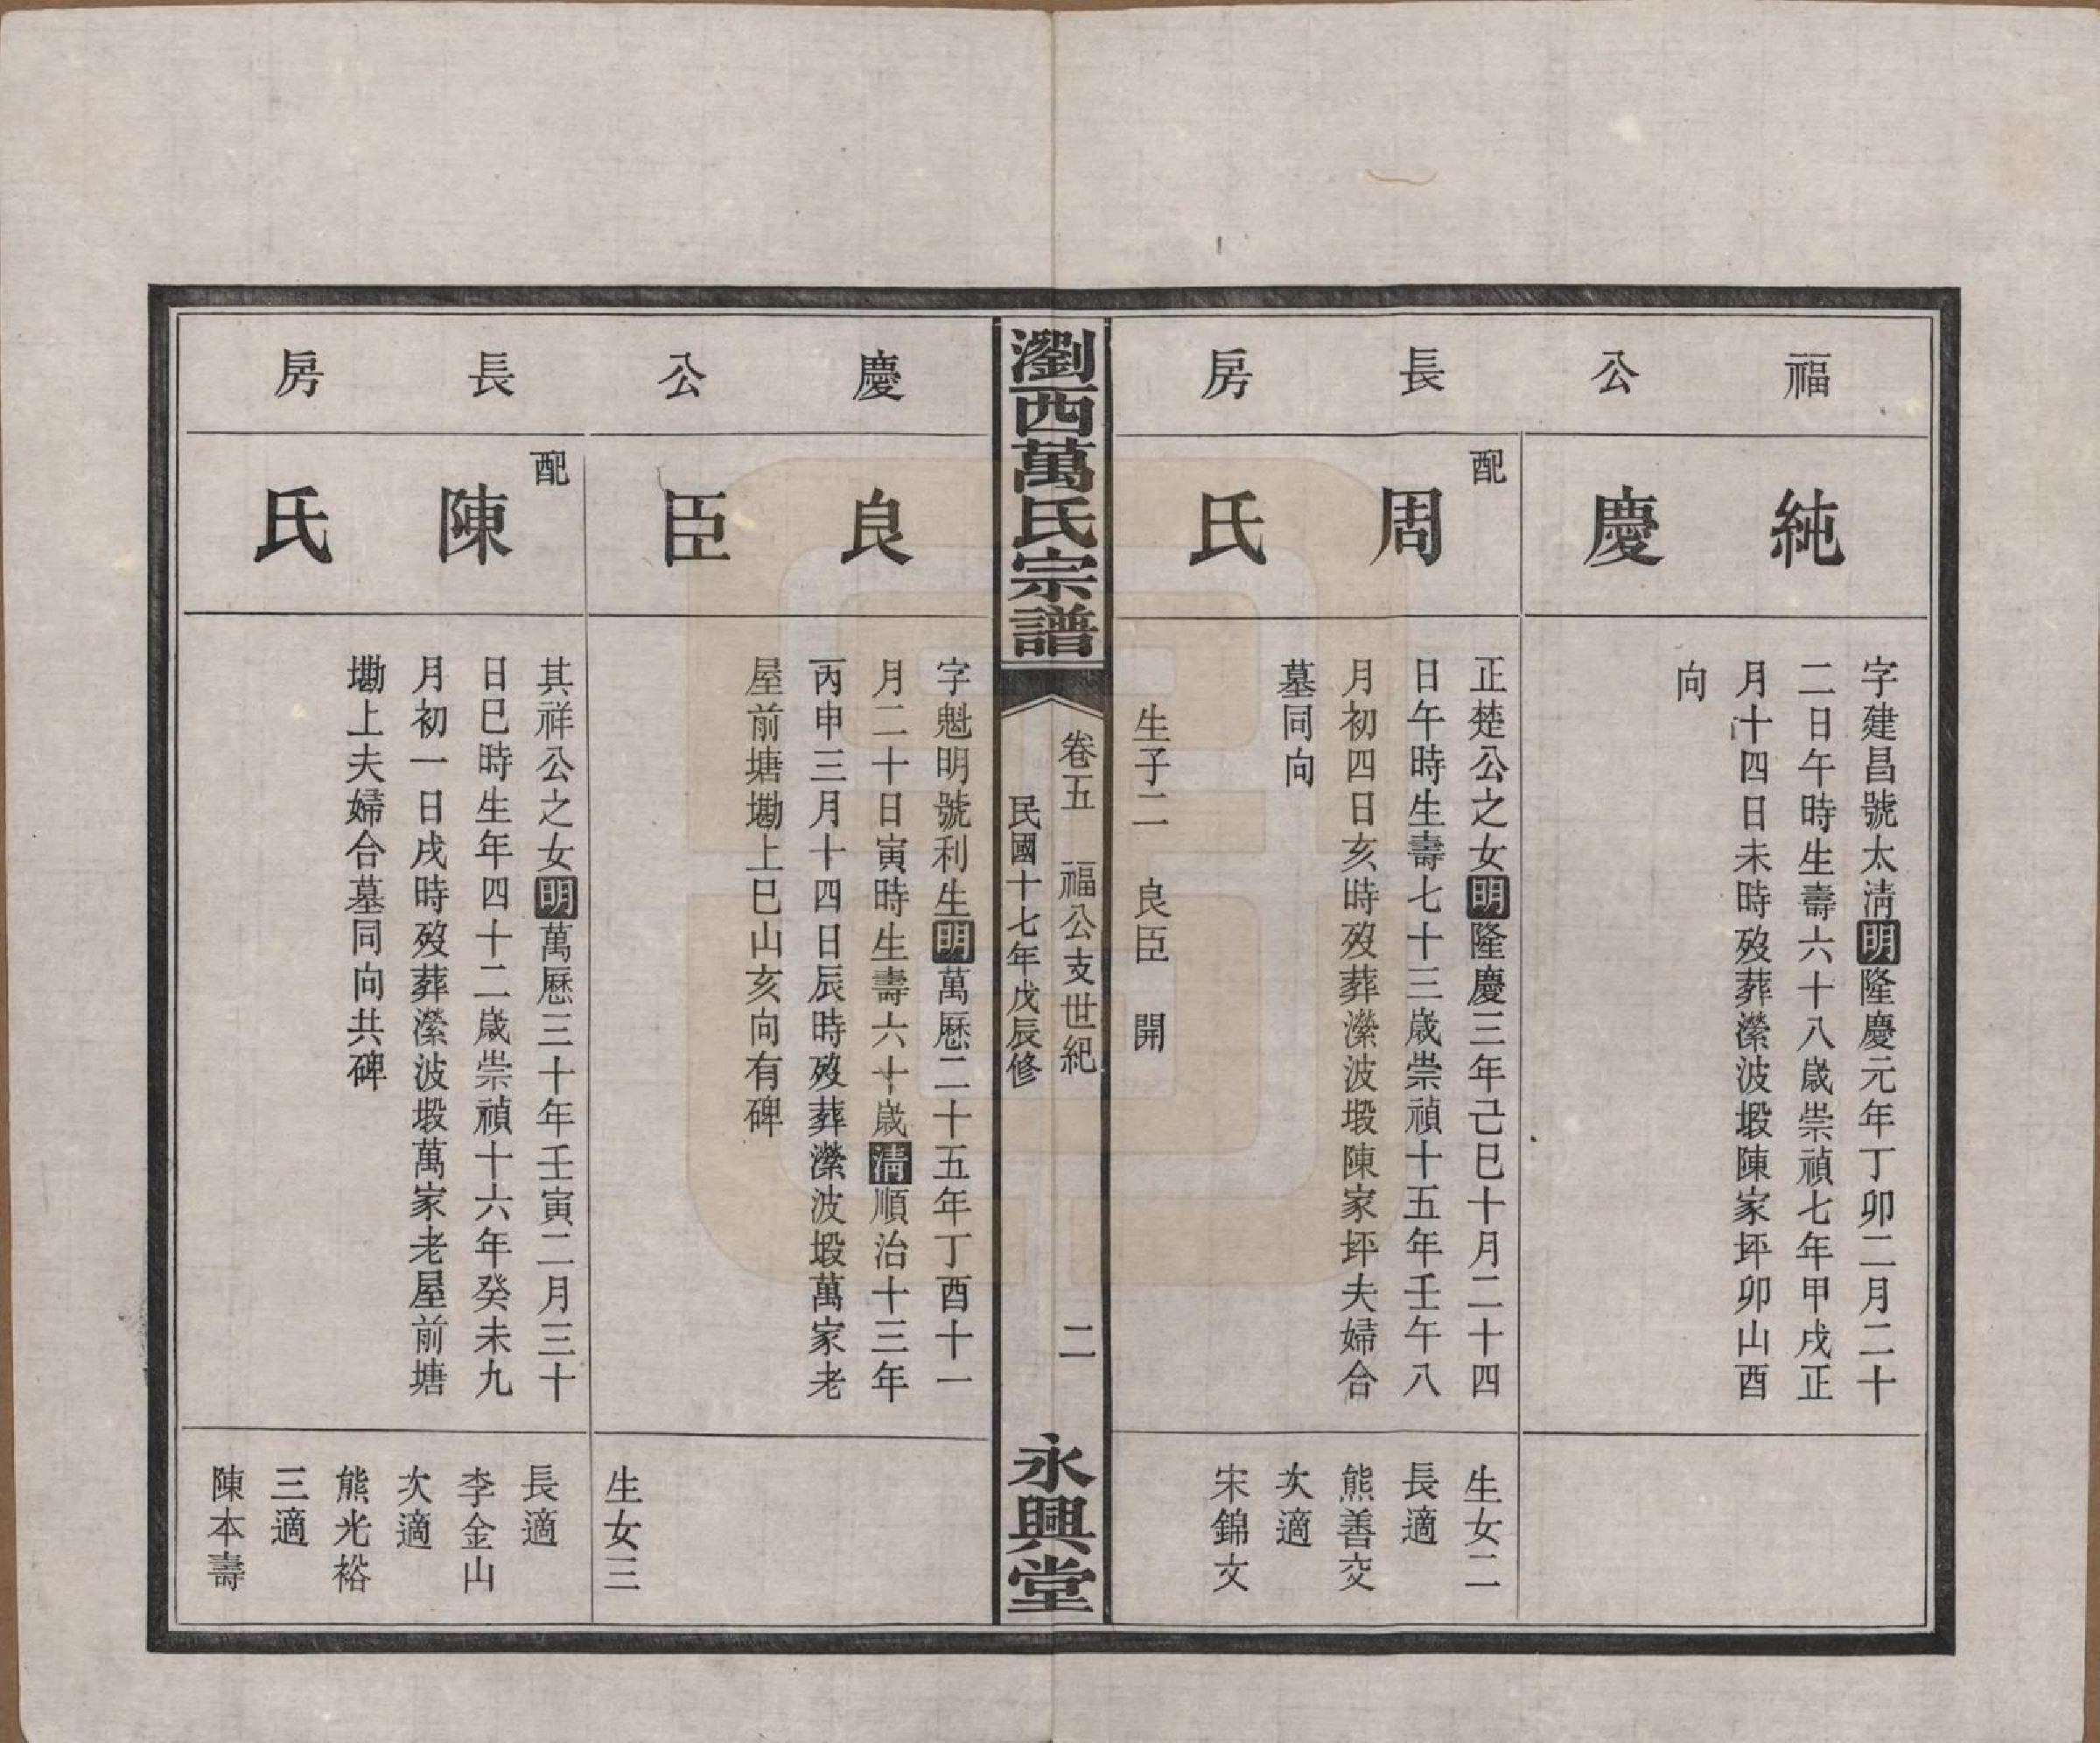 福公長房
純慶
字建昌號太淸明隆慶元年丁卯二月二十
二日午時生壽六十八歲崇禎七年甲戌正
月十四日未時歿葬瀠波塅陳家坪卯山酉
向
配
周氏
正楚公之女明隆慶三年己巳十月二十四
日午時生壽七十三歲崇禎十五年壬午八
月初四日亥時歿葬瀠波塅陳家坪夫婦合
墓同向
生子二 良臣 開
生女二
長適
熊善交
次適
宋錦文
瀏西萬氏宗譜
卷五 福公支世紀 二
民國十七年戊辰修
永興堂
慶公長房
良臣
字魁明號利生明萬歷二十五年丁酉十一
月二十日寅時生壽六十歲淸順治十三年
丙申三月十四日辰時歿葬瀠波塅萬家老
屋前塘墈上巳山亥向有碑
配
陳氏
其祥公之女明萬歷三十年壬寅二月三十
日巳時生年四十二歲崇禎十六年癸未九
月初一日戌時歿葬瀠波塅萬家老屋前塘
墈上夫婦合墓同向共碑
生女三
長適
李金山
次適
熊光裕
三適
陳本壽